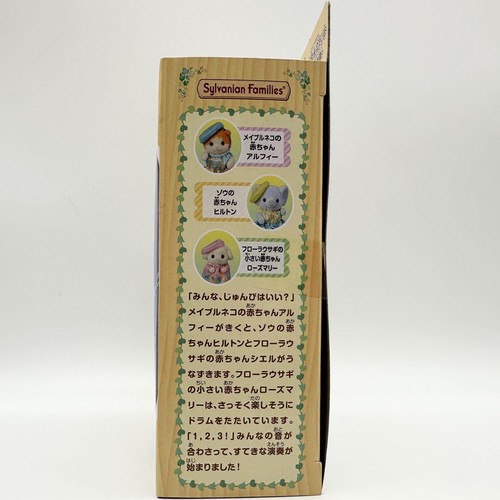 Sylvanian Families®
メイプルネコの
赤ちゃん
アルフィー
ゾウの
赤ちゃん
ヒルトン
フローラウサギの
小さい赤ちゃん
ローズマリー
「みんな、じゅんびはいい?」
メイプルネコの赤ちゃんアル
フィーがきくと、ゾウの赤
ちゃんヒルトンとフローラウ
サギの赤ちゃんシエルがう
なずきます。フローラウサギ
の小さい赤ちゃんローズマ
リーは、さっそく楽しそうに
ドラムをたたいています。
「1,2,3!」みんなの音が
合わさって、すてきな演奏が
始まりました!